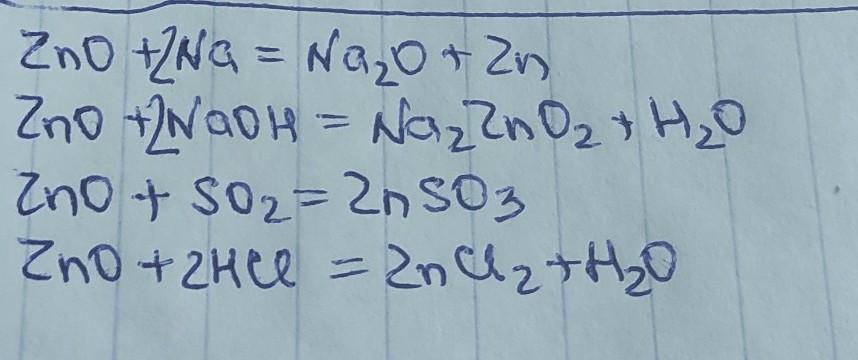 ZnO + 2Na = Na₂O + Zn
ZnO + 2NaOH = Na₂ZnO₂ + H₂O
ZnO + SO₂ = ZnSO₃
ZnO + 2HCl = ZnCl₂ + H₂O